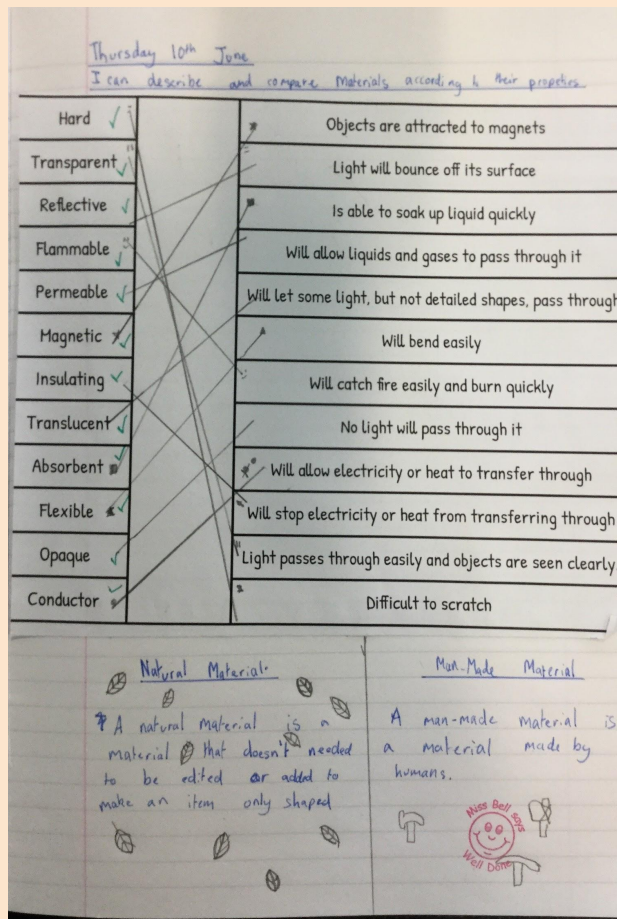 Thursday 10th June
I can describe and compare materials according to their propeties
Hard
Transparent
Reflective
Flammable
Permeable
Magnetic
Insulating
Translucent
Absorbent
Flexible
Opaque
Conductor
Objects are attracted to magnets
Light will bounce off its surface
Is able to soak up liquid quickly
Will allow liquids and gases to pass through it
Will let some light, but not detailed shapes, pass through
Will bend easily
Will catch fire easily and burn quickly
No light will pass through it
Will allow electricity or heat to transfer through
Will stop electricity or heat from transferring through
Light passes through easily and objects are seen clearly
Difficult to scratch
Natural Material
A natural material is a
material that doesn't needed
to be edited or added to
make an item only shaped
Man-Made Material
A man-made material is
a material made by
humans.
Miss Bell says
Well Done